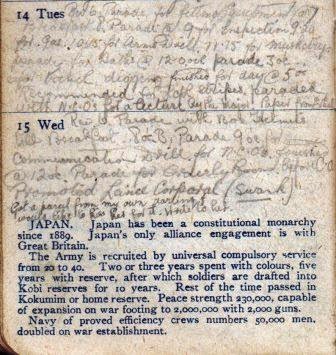 14 Tues Rev & Parade, for
Breakfast & Parade @ 9 for Inspection 9.30
for Gas. 10.15 for Arms Drill, 11.15 for Musketry
parade for Baths @ 12 oclk parade 3oc
for digging finished for day @ 5.00
Recommended for stripes, paraded
with N.C.Os for a lecture by the Major. Paper from
15 Wed Rev & Parade with Box
till Breakfast. Parade 9oc for
Communication Drill for
@ 12oc Parade for Orders
Promoted Lance Corporal (Swank)
Got a parcel from my own darling
JAPAN. Japan has been a constitutional monarchy
since 1889. Japan's only alliance engagement is with
Great Britain.
The Army is recruited by universal compulsory service
from 20 to 40. Two or three years spent with colours, five
years with reserve, after which soldiers are drafted into
Kobi reserves for 10 years. Rest of the time passed in
Kokumim or home reserve. Peace strength 230,000, capable
of expansion on war footing to 2,000,000 with 2,000 guns.
Navy of proved efficiency crews numbers 50,000 men,
doubled on war establishment.